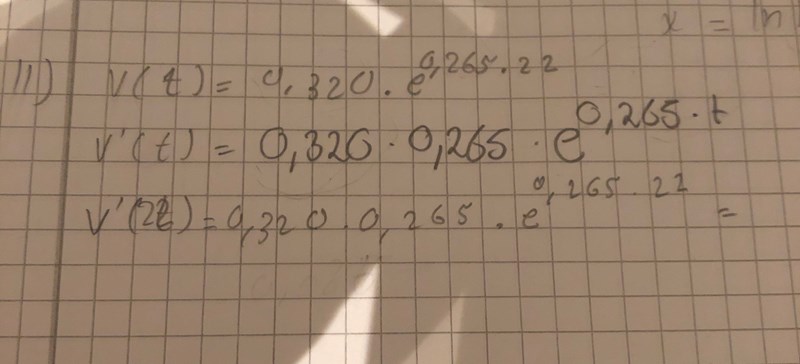 x = ln
11) V(t) = 0,320 · e^0,265 · 22
V'(t) = 0,320 · 0,265 · e^0,265 · t
V'(22) = 0,320 · 0,265 · e^0,265 · 22 =